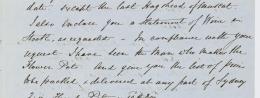 date except the last Hogshead of
I also enclose you a Statement of Wine in
as requested - In compliance with your
request I have seen the Man who makes the
Flower Pots and give you the cost of from
packed & delivered at any part of Sydney